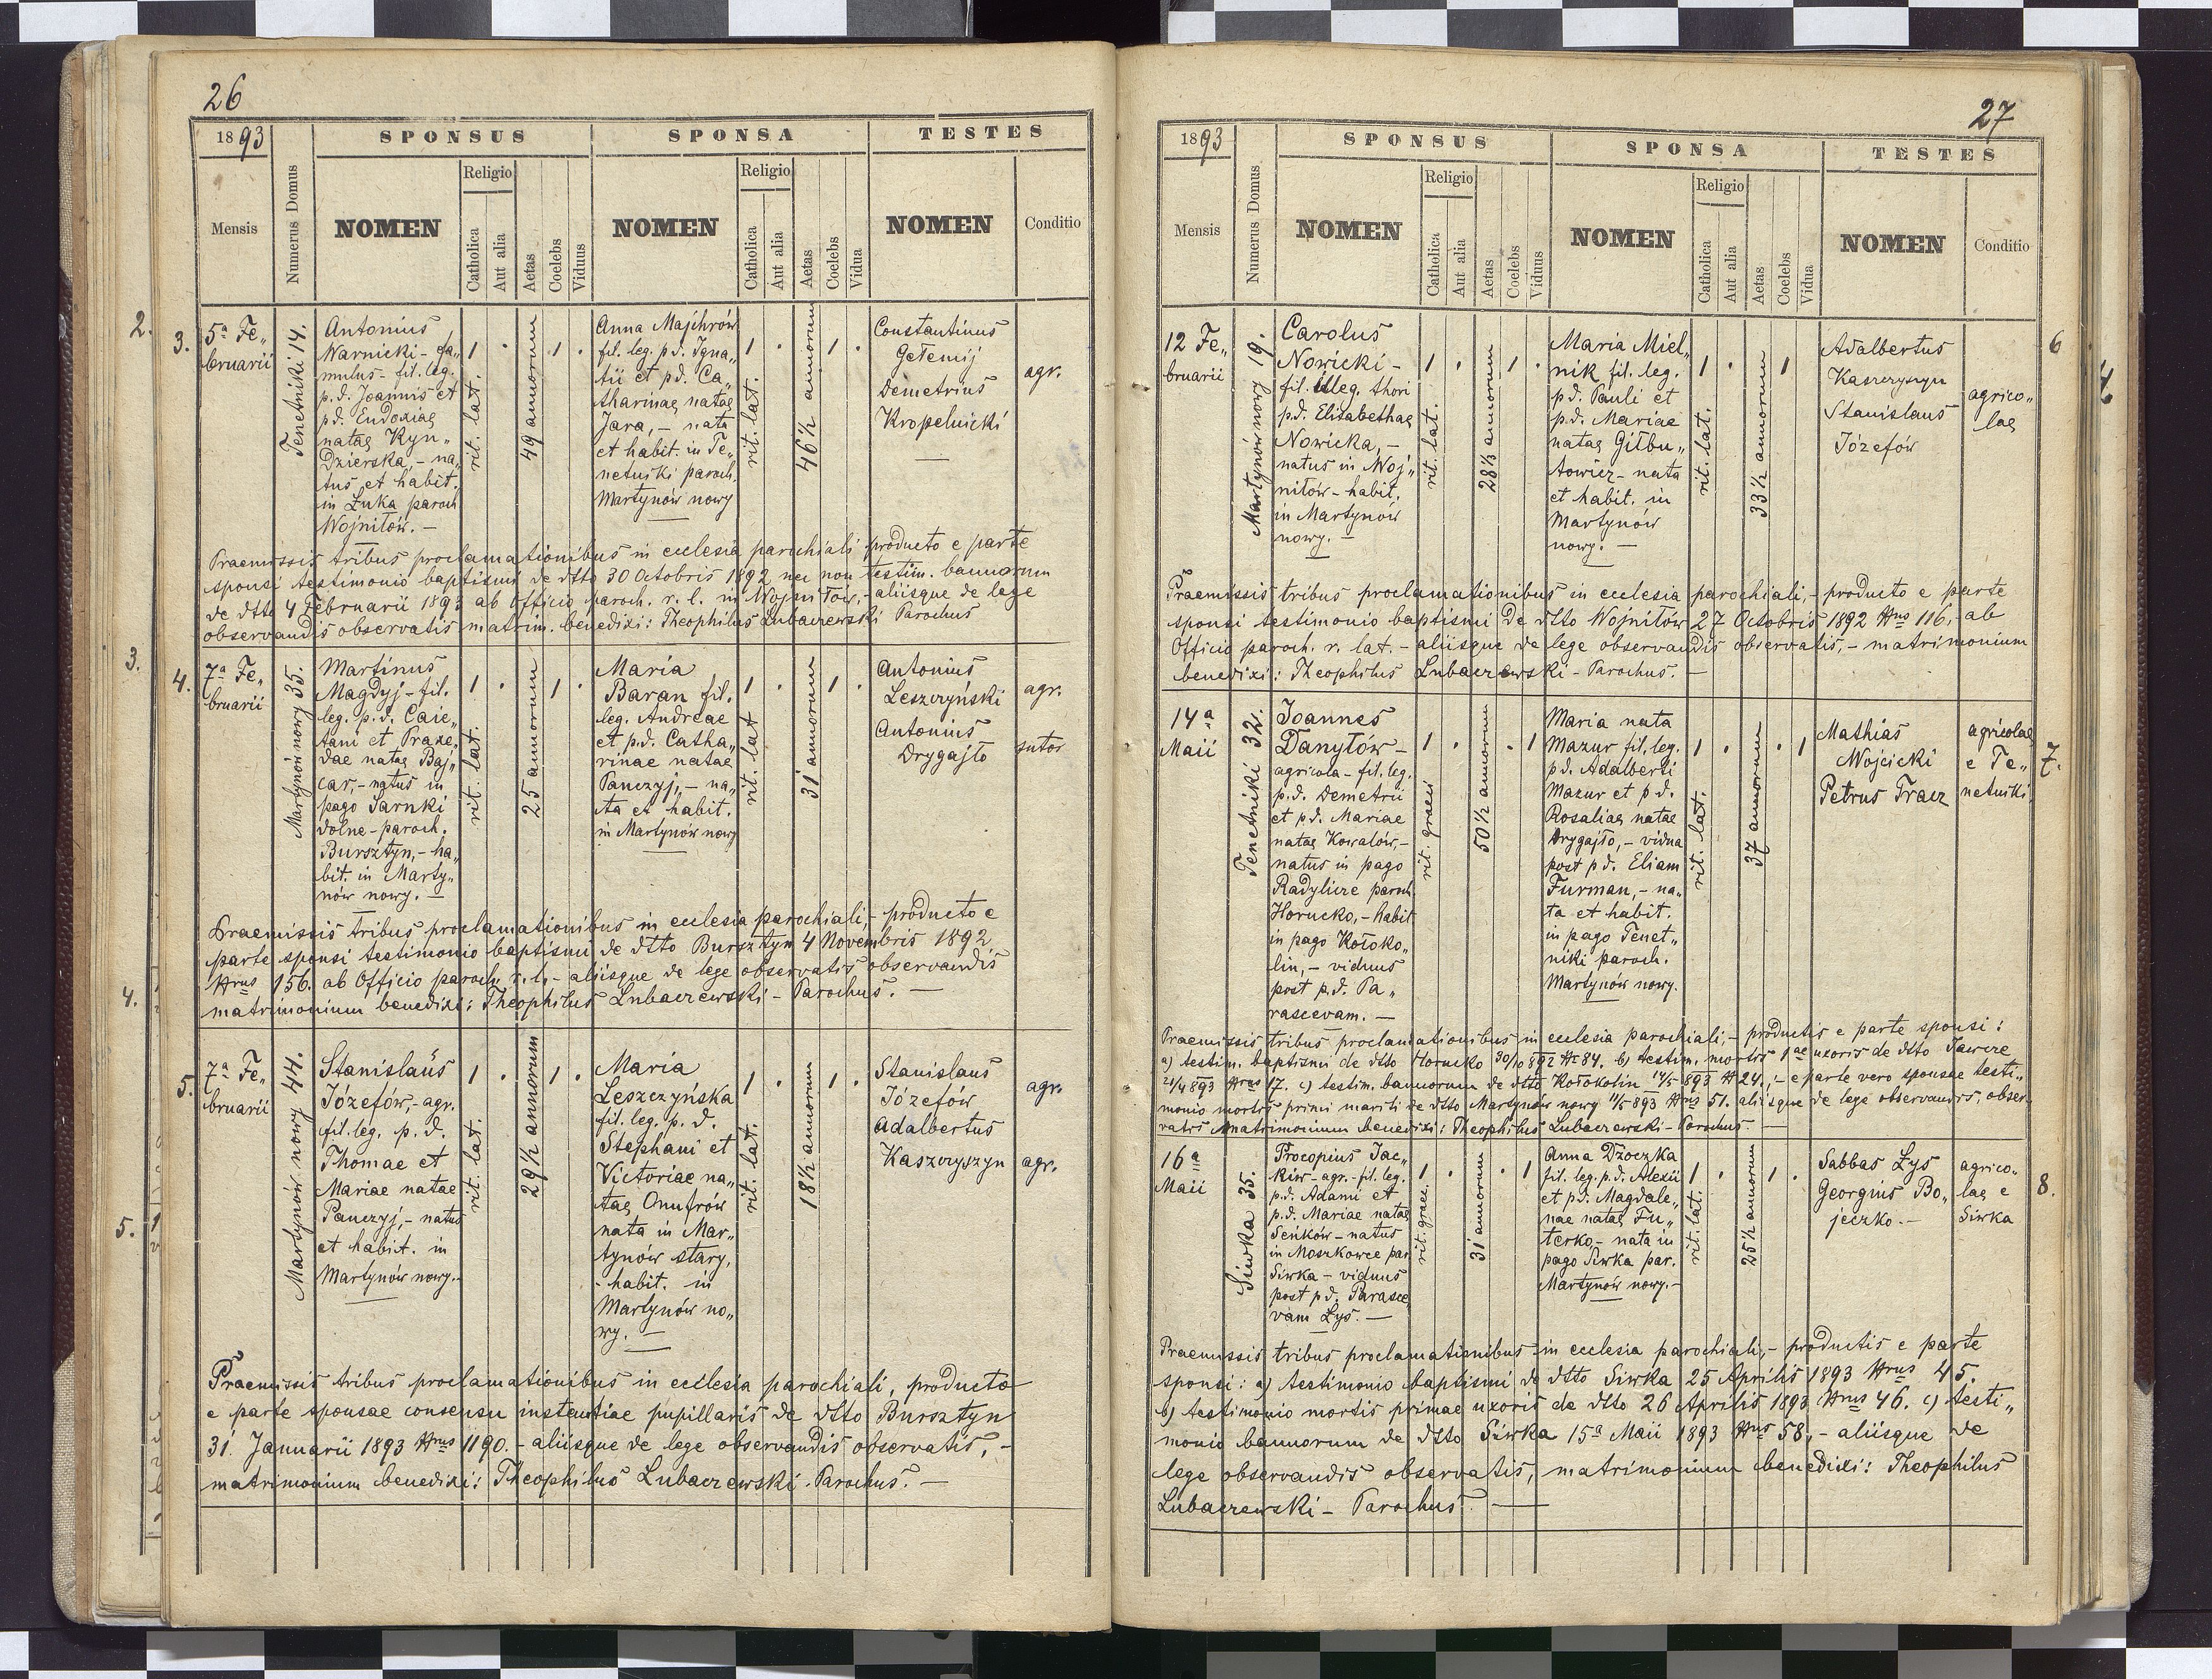 26
1893
SPONSUS
SPONSA
TESTES
Mensis
Numerus Domus
NOMEN
Religio
Catholica
Aut alia
Aetas
Coelebs
Viduus
NOMEN
Religio
Catholica
Aut alia
Aetas
Coelebs
Vidua
NOMEN
Conditio
2.
3.
5ª Fe„
bruarii
Tenetniki 14.
Antonius
Warnicki - fa„
mulus - fil. leg.
p.d. Joannis et
p.d. Eudoxiae
natae Kyn„
Dzierska, - na„
tus et habit.
in Łuka paroch
Wojniłów. -
1
rit. lat.
49 annorum
1
Anna Majchrów
fil. leg. p.d. Igna„
tii et p.d. Ca„
tharinae natae
Jara, - nata
et habit. in Te„
netniki paroch.
Martynów nowy
1
rit. lat.
46½ annorum
1
Constantinus
Gełemij
Demetrius
Kropelnicki
agr.
Praemissis tribus proclamationibus in ecclesia parochiali, producto e parte
sponsi testimonio baptismi de dtto 30 Octobris 1892 nec non testim. bannorum
de dtto 4 Februarii 1893 ab Officio paroch. r. l. in Wojniłów, - aliisque de lege
observandis observatis matrim. benedixi: Theophilus Lubaczewski Parochus
3.
4.
7ª Fe„
bruarii
Martynów nowy 35.
Martinus
Magdyj - fil.
leg. p.d. Caie„
tani et Praxe„
dae natae Baj„
car, - natus in
pago Sarnki
dolne - paroch.
Bursztyn, - ha„
bit. in Marty„
nów nowy. -
1
rit. lat.
25 annorum
1
Maria
Baran fil.
leg. Andreae
et p.d. Catha„
rinae natae
Panczyj, - na„
ta et habit.
in Martynów nowy
1
rit. lat
31 annorum
1
Antonius
Leszczyński
Antonius
Drygajło
agr.
sutor
Praemissis tribus proclamationibus in ecclesia parochiali, - producto e
parte sponsi testimonio baptismi de dtto Bursztyn 4 Novembris 1892
Nrus 156. ab Officio paroch. r. l. - aliisque de lege observatis observandis
matrimonium benedixi: Theophilus Lubaczewski - Parochus. -
4.
5.
7ª Fe„
bruarii
Martynów nowy 44.
Stanislaus
Józefów, - agr.
fil. leg. p. d.
Thomae et
Mariae natae
Panczyj, - natus
et habit. in
Martynów nowy. -
1
rit. lat.
29½ annorum
1
Maria
Leszczyńska
fil. leg. p. d.
Stephani et
Victoriae na„
tae Onufrów
nata in Mar„
tynów stary,
- habit. in
Martynów no„
wy. -
1
rit. lat.
18½ annorum
1
Stanislaus
Józefów
Adalbertus
Kaszczyszyn
agr.
agr.
5.
Praemissis tribus proclamationibus in ecclesia parochiali, producto
e parte sponsae consensu instantiae pupillaris de dtto Bursztyn
31 Januarii 1893 Nrus 1190. - aliisque de lege observandis observatis, -
matrimonium benedixi: Theophilus Lubaczewski - Parochus. -
27
1893
SPONSUS
SPONSA
TESTES
Mensis
Numerus Domus
NOMEN
Religio
Catholica
Aut alia
Aetas
Coelebs
Viduus
NOMEN
Religio
Catholica
Aut alia
Aetas
Coelebs
Vidua
NOMEN
Conditio
12 Fe„
bruarii
Martynów nowy 19.
Carolus
Nowicki -
fil. illeg. thori
p.d. Elisabethae
Nowicka, -
natus in Woj„
niłów - habit.
in Martynów
nowy. -
1
rit. lat.
28½ annorum
1
Maria Miel„
nik fil. leg.
p.d. Pauli et
p.d. Mariae
natae Giłbu„
towicz - nata
et habit. in
Martynów
nowy. -
1
rit. lat.
33½ annorum
1
Adalbertus
Kaszczyszyn
Stanislaus
Józefów
agrico„
lae
6
Praemissis tribus proclamationibus in ecclesia parochiali, - producto e parte
sponsi testimonio baptismi de dtto Wojniłów 27 Octobris 1892 Nrus 116, ab
Officio paroch. r. lat. - aliisque de lege observandis observatis, - matrimonium
benedixi: Theophilus Lubaczewski - Parochus. -
14ª
Maii
Tenetniki 32.
Joannes
Danyłów -
agricola - fil. leg.
p.d. Demetrii
et p.d. Mariae
natae Kowalów, -
natus in pago
Radylicze paroch.
Horucko, - habit
in pago Kołoko„
lin, - viduus
post p.d. Pa„
rascevam. -
1
rit. graeci
50½ annorum
1
Maria nata
Mazur fil. leg.
p.d. Adalberti
Mazur et p.d.
Rosaliae natae
Drygajło, - vidua
post p.d. Eliam
Furman, - na„
ta et habit.
in pago Tenet„
niki paroch.
Martynów nowy.
1
rit. lat.
37 annorum
1
Mathias
Wojcicki
Petrus Tracz
agricolae
e Te„
netniki
7.
Praemissis tribus proclamationibus in ecclesia parochiali, - productis e parte sponsi:
a) testim. baptismi de dtto Horucko 30/10 892 N 84. b) testim. mortis 1ae uxoris de dtto Jawcze
21/4 893 Nrus 17. c) testim. bannorum de dtto Kołokolin 14/5 893 N 24.; - e parte vero sponsae testi„
monio mortis primi mariti de dtto Martynów nowy 11/5 893 Nrus 51. aliisque de lege observandis, obser„
vatis matrimonium benedixi: Theophilus Lubaczewski - Parochus -
16ª
Maii
Siwka 35.
Procopius Jac„
kiw - agr. - fil. leg.
p.d. Adami et
p.d. Mariae natae
Seńków - natus
in Moszkowce par.
Siwka - viduus
post p.d. Parasce„
vam Łys. -
1
rit. graeci
31 annorum
1
Anna Dzoczka
fil. leg. p.d. Alexii
et p.d. Magdale„
nae natae Fu„
terko, - nata in
pago Siwka par.
Martynów nowy. -
1
rit. lat.
25½ annorum
1
Sabbas Łys
Georgius Bo„
jeczko. -
agrico„
lae e
Siwka
8.
Praemissis tribus proclamationibus in ecclesia parochiali, - productis e parte
sponsi: a) testimonio baptismi de dtto Siwka 25 Aprilis 1893 Nrus 45.
b) testimonio mortis primae uxoris de dtto 26 Aprilis 1893 Nrus 46. c) testi„
monio bannorum de dtto Siwka 15ª Maii 1893 Nrus 58, - aliisque de
lege observandis observatis, matrimonium benedixi: Theophilus
Lubaczewski - Parochus. -